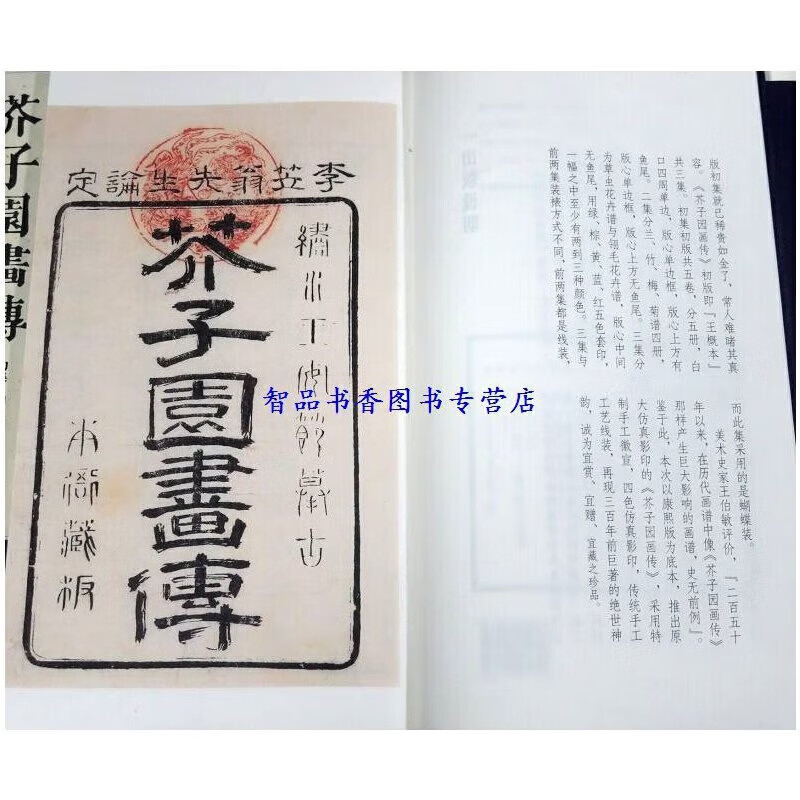 芥子園畫傳
李笠翁先生論定
繡水王安節摹古
芥子園畫傳
本衙藏板
版初集就已稀贵如金了，常人难睹其真
容。《芥子园画传》初版即『王概本』
共三集。初集初版共五卷，分五册，白
口四周单边，版心单边框，版心上方有
鱼尾。二集分兰、竹、梅、菊谱四册，
版心单边框，版心上方无鱼尾。三集分
为草虫花卉谱与翎毛花卉谱，版心中间
无鱼尾，用绿、棕、黄、蓝、红五色套印，
一幅之中至少有两到三种颜色。三集与
前两集装裱方式不同，前两集都是线装，
而此集采用的是蝴蝶装。
美术史家王伯敏评价，『二百五十
年以来，在历代画谱中像《芥子园画传》
那样产生巨大影响的画谱，史无前例』。
鉴于此，本次以康熙版为底本，推出原
大仿真影印的《芥子园画传》，采用特
制手工徽宣，四色仿真影印，传统手工
工艺线装，再现三百年前巨著的绝世神
韵，诚为宜赏、宜赠、宜藏之珍品。
智品书香图书专营店